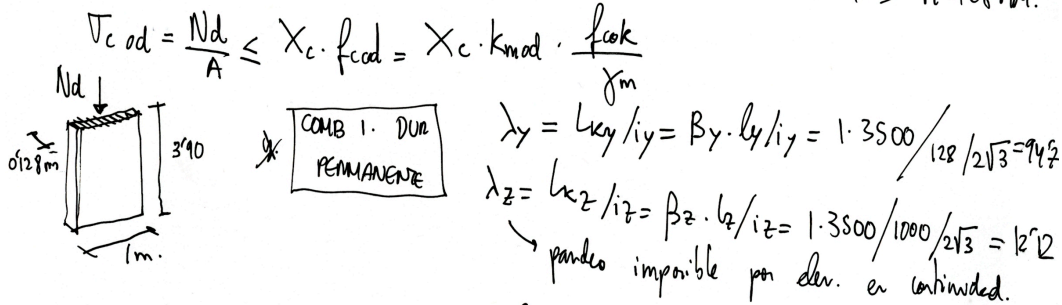 σc,od = Nd/A ≤ Xc · fcod = Xc · kmod · fcok/γm
Nd
0'128m
3'90
1m.
COMB 1. DUR
PERMANENTE
λy = Lky/iy = βy · ly/iy = 1·3500/128/2√3 = 94'7
λz = Lkz/iz = βz · lz/iz = 1·3500/1000/2√3 = 12'12
pandeo imposible por elem. en continuidad.